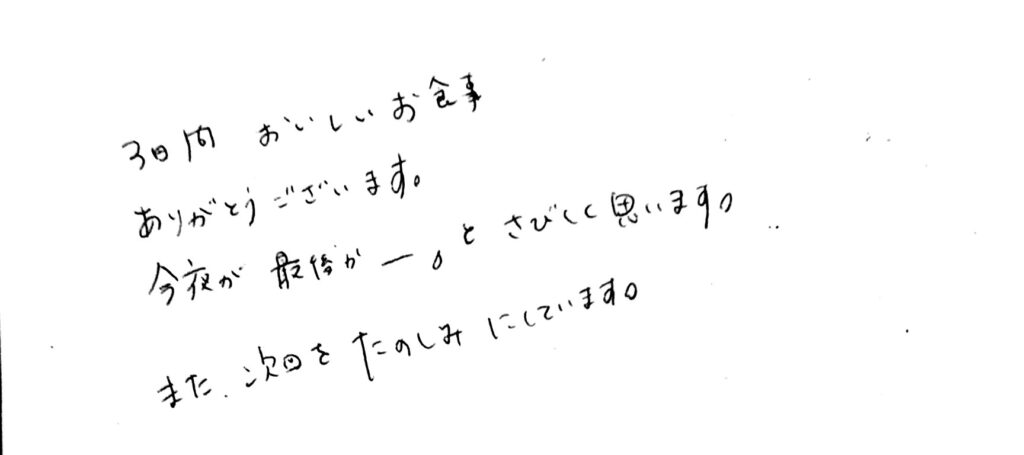 3日間 おいしいお食事
ありがとうございます。
今夜が 最後かー。と さびしく思います。
また、次回を たのしみ にしています。